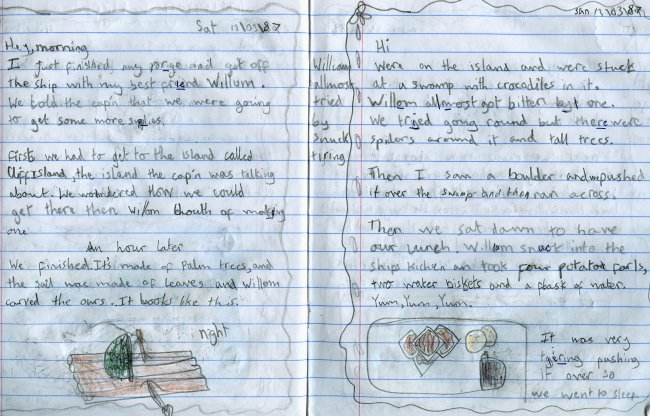 Sat 12/03/87
Hey, morning
I just finished my porge and got off
the ship with my best friend Willum.
We told the capn that we were going
to get some more suplies.
First we had to get to the island called
CliffIsland, the island the capn was talking
about. We wondered How we could
get there then Willom thouth of making
one.
An hour later
We finished. It's made of Palm trees, and
the sail was made of leaves and Willom
carved the ours.. It looks like this.
night
Sun 13/03/87
Hi
Were on the island and were stuck
at a swamp with crocodiles in it.
Willem allmost got bitten by 1 one.
We tryed going round but there were
spiders around it and tall trees.
William
allmost
tried
by
snuck
tiring
Then I saw a boulder and we pushed
it over the swamp and then ran across.
Then we sat down to have
our lunch. Willom snuck into the
ships kichen an took four potatos farls,
two water biskets and a flask of water.
Yum, Yum, Yum.
It was very
tyring pushing
it over so
we went to sleep.